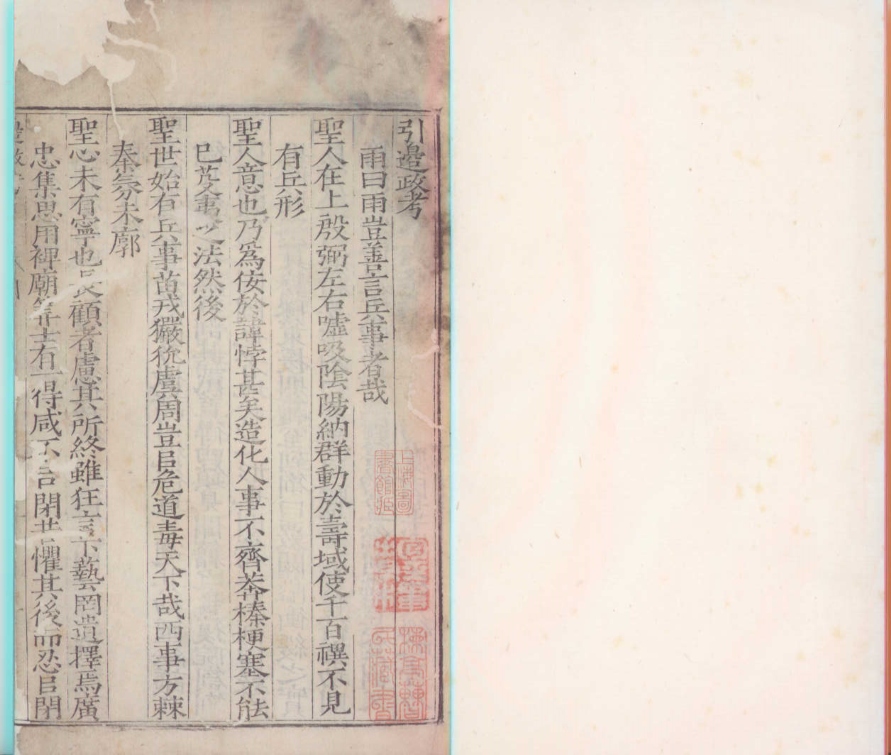 引邊政考
雨曰雨豈善言兵事者哉
聖人在上殷弼左右噓吸陰陽納群動於壽域使千百禩不見
有兵形
聖人意也乃為侒於諱悖甚矣造化人事不齊莾榛梗塞不能
已芟夷之法然後
聖世始有兵事苗戎玁狁虞周豈㠯危道毒天下哉西事方棘
秦氛未廓
聖心未有寧也長顧者慮其所終雖狂言下藝罔遺擇焉廣
忠集思用裨廟筭士有一得咸不㠯閉昔懼其後而忍㠯閉
上海圖書館藏